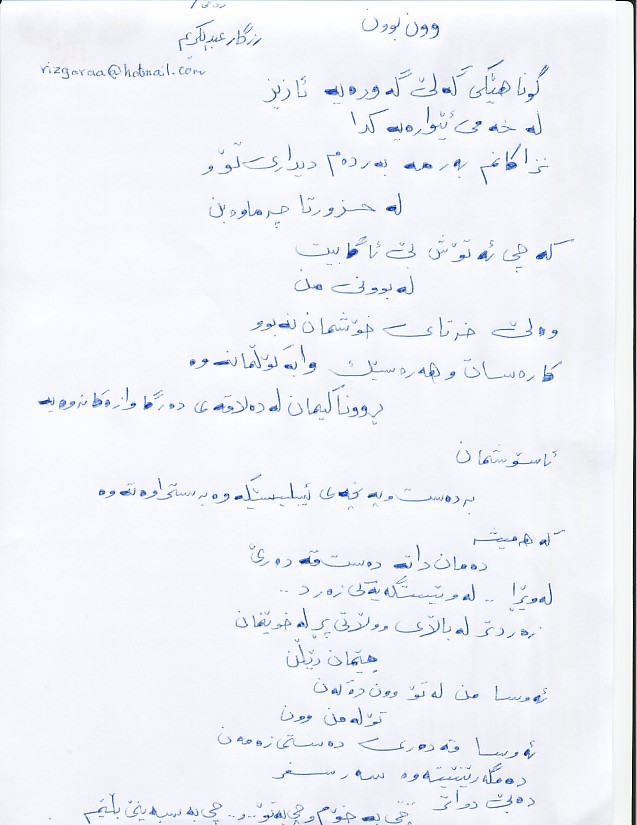 وون بوون
رزگار عبدالكريم
rizgaraa@hotmail.com
گوناهێکی گەلێ گەورەیە ئازیز
لە خەمی ئێوارەیەکدا
نزاکانم بەرمە بەردەم دیداری تۆو
لە حزورتا چەماوەبن
کەچی ئەتۆش بێ ئاگابیت
لەبوونی من
وەلێ خەتای خۆشمان نەبوو
کارەسات و هەرەسێک وابەکۆڵمانەوە
ڕووناکیمان لەدەلاقەی دەرگاوازەکانەوەیە
ئاسۆشمان
بەدەست و پەنجەی ئیبلیسێکەوە بەستراوەتەوە
کەهەمیشە
دەمان داتە دەست قەدەرێ
لەوێڕا .. لەوێستگەیەکی زەرد ..
زەردتر لەباڵای ووڵاتی پڕ لەخوێنمان
جێمان دێڵن
ئەوسا من لەتۆ وون دەکەن
تۆ لەمن وون
ئەوسا قەدەری دەستی زەمەن
دەمگەڕێنێتەوە سەر سفر
دەبێ دواتر
چی بەخۆم و چی بەتۆ.. و.. چی بەسبەینێ بڵێم